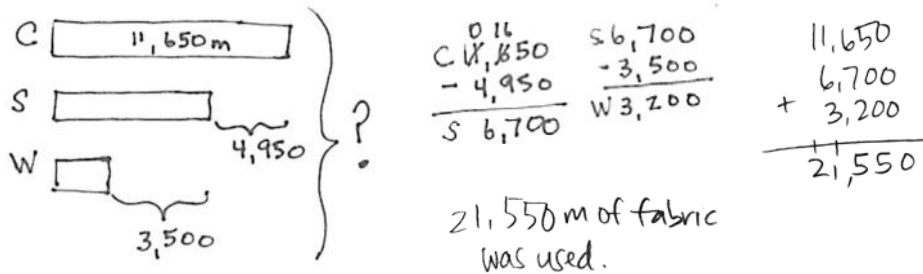 C 11,650 m
S
4,950
W
3,500
?
0 16
C 11,650
- 4,950
S 6,700
S 6,700
- 3,500
W 3,200
11,650
6,700
+ 3,200
1 1
21,550
21,550 m of fabric
was used.